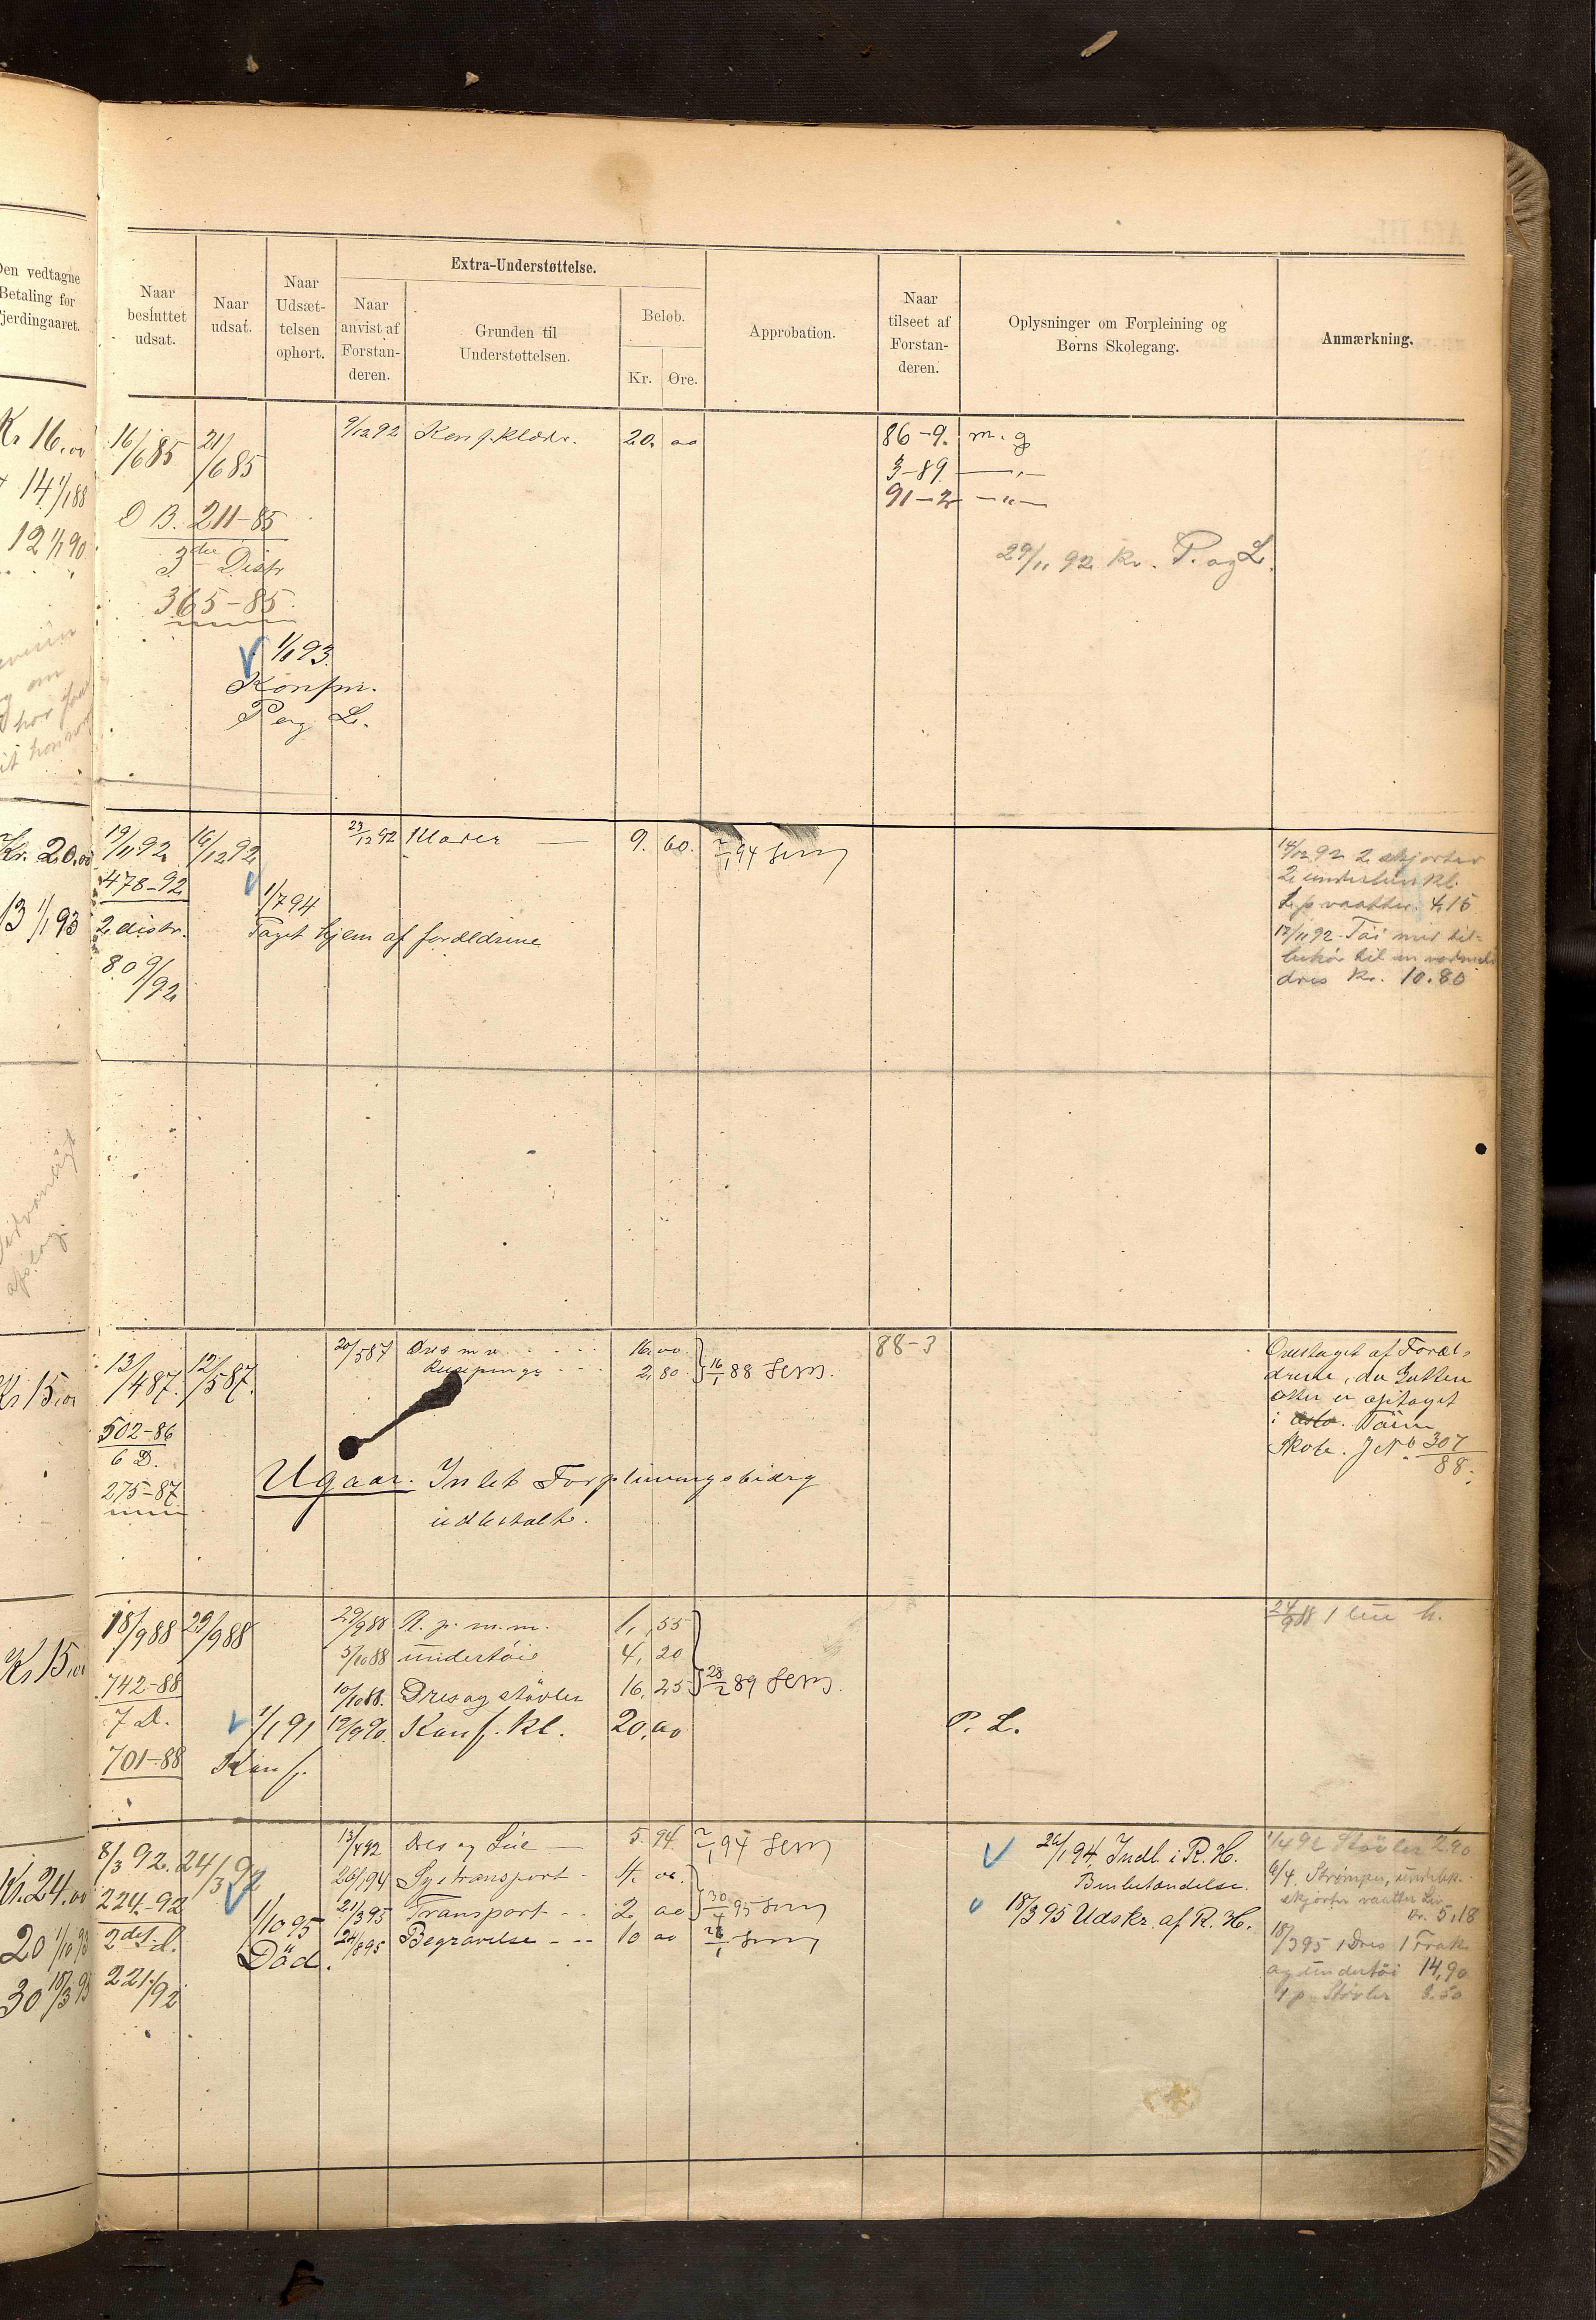 Den vedtagne
Betaling for
Fjerdingaaret.
Naar
besluttet
udsat.
Naar
udsat.
Naar
Udsæt-
telsen
ophørt.
Extra-Understøttelse.
Naar
anvist af
Forstan-
deren.
Grunden til
Understøttelsen.
Beløb.
Kr.
Øre.
Approbation.
Naar
tilseet af
Forstan-
deren.
Oplysninger om Forpleining og
Børns Skolegang.
Anmærkning.
Kr 16,00
14 1/1 88
12 1/1 90
16/6 85
21/6 85
9/12 92 Konf. klæder. 20. 00
86-9. m. g
3-89 — " —
91-2 — " —
D B. 211-85
3die Distr
365-85
29/11 92 Kr. P. og L.
1/1 93.
Konfm.
P og L.
Kr. 20,00
13 1/1 93
19/11 92
16/12 92
23/12 92 Klæder — 9. 60. 2/1 94 Sem
478-92
2 distr.
80 9/92
1/7 94
Taget hjem af forældrene
14/12 92 2 skjorter
2 underbenkl.
2 p vaatter. 4,15
17/11 92 Töi med til-
behör til en vadmels
dres Kr. 10.80
Kr 15,00
13/4 87.
12/5 87.
20/5 87 Dres m v. . . . . 16. 00
Reisepenge - - - 2,80
16/1 88 Sem.
88-3
502-86
6 D.
275-87
Overtaget af Foræl-
drene, da Gutten
atter er optaget
i Tøien
Skole. J No 307/88.
Udgaar. Intet Forpleiningsbidrag
udbetalt.
Kr 15,00
18/9 88
29/9 88
29/9 88 R. p. m.m. 1, 55
5/10 88 undertöie 4, 20
10/10 88. Dres og støvler 16, 25
28/2 89 Sem.
12/9 90. Konf. kl. 20,00
742-88
7 D.
701-88
1/1 91
Konf.
P. L.
24/9 88 1 lue
Kr. 24.00
20 1/10 93
30 18/3 95
8/3 92.
24/3 92
224-92
2det d.
221/92
1/10 95
Död.
13/4 92 Dres og Lue — 5. 94. 2/1 94 Sem
26/1 94 Sygetransport 4. 00.
21/3 95 Transport - - 2 00 30/4 95 Sem
24/8 95 Begravelse - - - 10 00 Sem
26/1 94, Indl. i R. H.
Benbetændelse.
18/3 95 Udskr. af R. H.
1/4 92 Støvler 2.90
6/4. Strømper, underbk.
skjorter vaatter
Kr. 5,18
18/3 95 1 Dres 1 Frak
og undertöi 14,90
1 p. Støvler 3.50